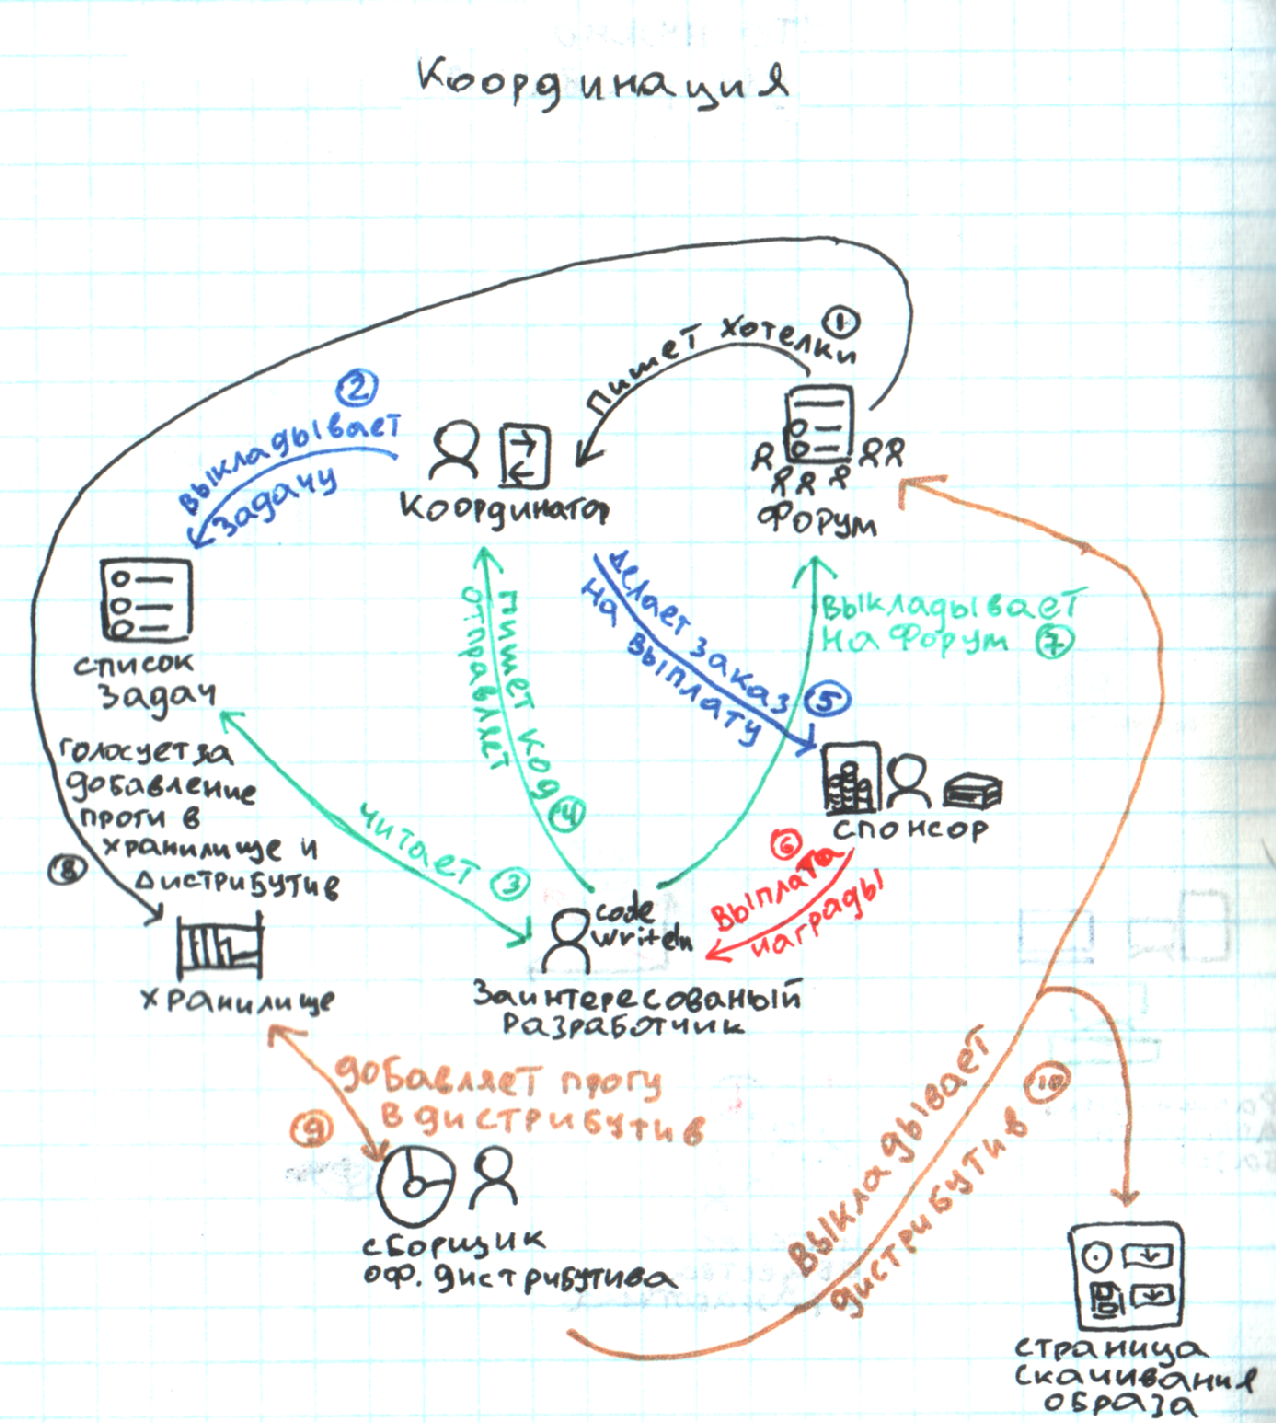 Координация
Пишет хотелки 1
2
выкладывает
задачу
Координатор
Форум
список
задач
пишет код 4
отправляет
Делает заказ 5
на выплату
выкладывает
на Форум 7
голосует за
добавление
проги в
хранилище и
дистрибутив
8
читает 3
спонсор
6
выплата
награды
code
Заинтересованый
разработчик
хранилище
добавляет прогу
в дистрибутив
9
сборщик
оф. дистрибутива
выкладывает
дистрибутив 10
страница
скачивания
образа